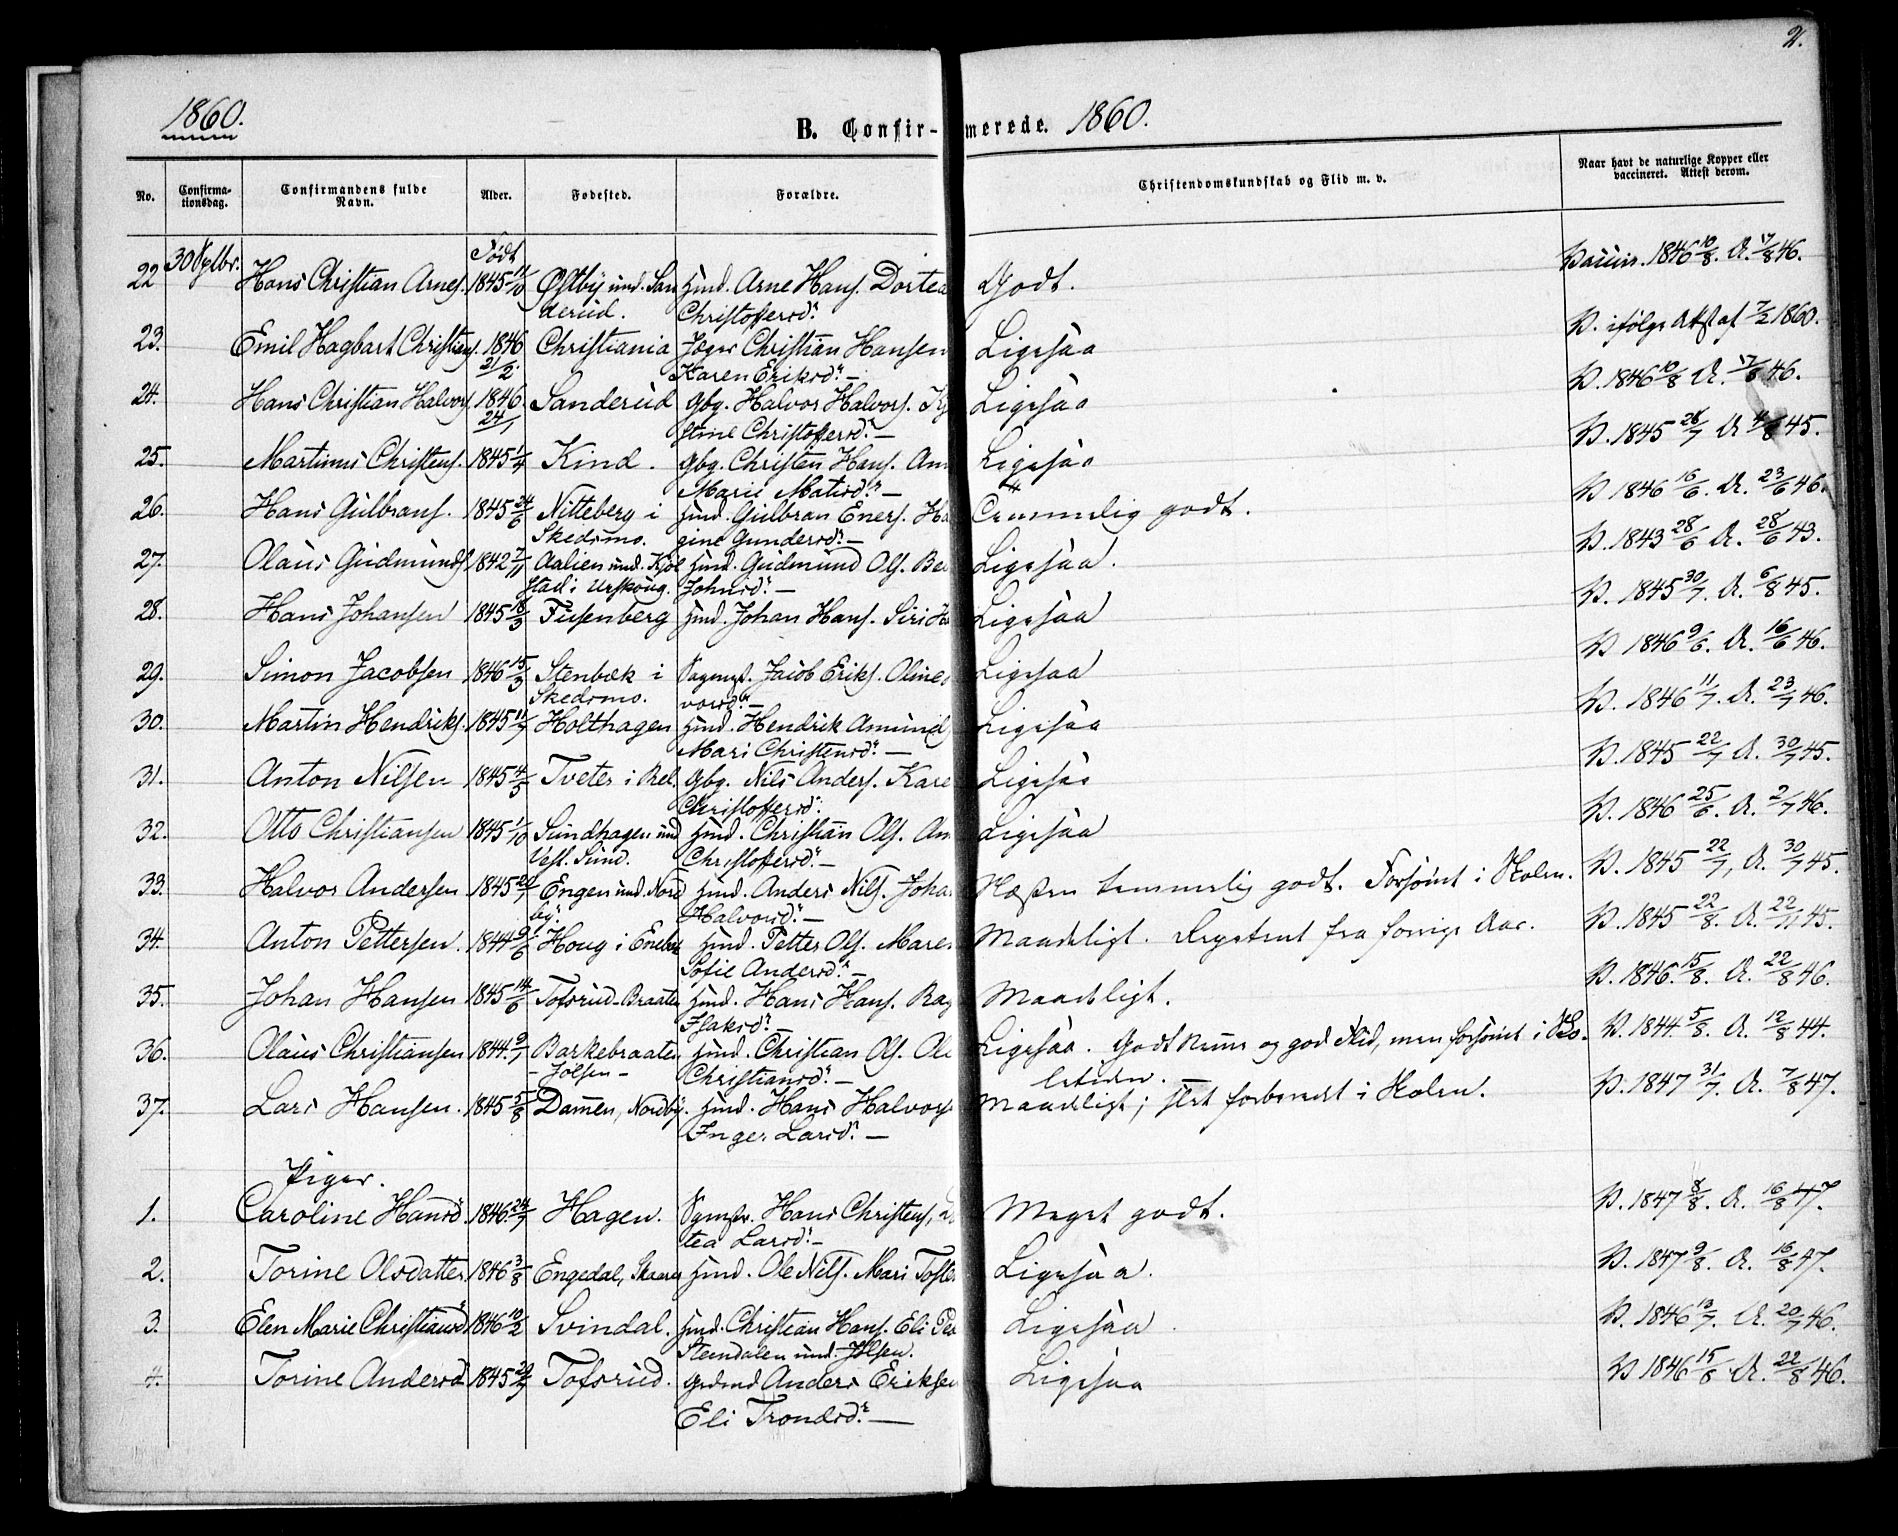 2.
1860.
B. Confir-merede. 1860.
No. Confirma-tionsdag. Confirmandens fulde Navn. Alder. Fødested. Forældre. Christendomskundskab og Flid m. v. Naar havt de naturlige Kopper eller vaccineret. Attest derom.
Født
22 30 Sptbr. Hans Christian Arnes. 1845 11/10 Østby und. San Hmd. Arne Hans. Dortea Godt. Vaccin. 1846 10/8. A. 17/8 46.
derud. Christoffersd.
23. Emil Hagbart Christians. 1846 Christiania Jæger Christian Hansen Ligesaa V. ifølge Attst af 7/2 1860.
21/2. Karen Eriksd. —
24. Hans Christian Halvors. 1846. Sanderud Gbg. Halvor Halvors. Kj Ligesaa V. 1846 10/8 A. 17/8 46.
24/1 stine Christoffersd. —
25. Martinus Christens. 1845 1/4 Kind. Gbg. Christen Hans. An Ligesaa V. 1845 28/7 A 4/8 45.
Marie Matisd. —
26. Hans Gulbrans. 1845 24/6 Nitteberg i Hmd. Gulbran Eners. Ha Temmelig godt. V 1846 16/6. A. 23/6 46.
Skedsmo. gine Gundersd. —
27. Olaus Gudmunds. 1842 7/11 Aalien und. Kjøl Hmd. Gudmund Ols. Be Ligesaa. V. 1843 28/6 A. 28/6 43.
stad i Urskoug. Johnsd. —
28. Hans Johansen 1845 18/3 Tusenberg Hmd. Johan Hans. Siri H Ligesaa V. 1845 30/7. A. 6/8 45.
29. Simon Jacobsen 1846 15/3 Stenbæk i Sagmst. Jacob Eriks. Oline Ligesaa V 1846 9/6. A. 16/6 46.
Skedsmo. vorsd. —
30. Martin Hendriks. 1845 11/7 Holthagen Hmd. Hendrik Amund Ligesaa V. 1846 11/7. A. 23/7 46.
Mari Christensd. —
31. Anton Nilsen 1845 4/5 Tveter i Rel. Gbg. Nils Anders. Kare Ligesaa V. 1845 22/7 A. 30/7 45.
Christoffersd.
32. Otto Christiansen 1845 1/10 Sundhagen und Hmd. Christian Ols. An Ligesaa V. 1846 25/6. A. 2/7 46.
Vestl. Sund. Christoffersd. —
33. Halvor Andersen 1845 Engen und. Nord Hmd. Anders Nils. Joha Næsten temmelig godt. Forsømt i Skolen. V. 1845 22/7, A. 30/7 45.
by. Halvorsd. —
34. Anton Pettersen. 1844 9/6 Houg i Eneb Hmd. Petter Ols. Maren Maadeligt. fra forrige Aar. V. 1845 22/8. A. 22/11 45.
Sofie Andersd. —
35. Johan Hansen 1845 14/6 Tofsrud-Braaten Hmd. Hans Hans. Rag Maadeligt. V. 1846. 15/8. A. 22/8 46.
Isaksd.
36. Olaus Christiansen 1844. 9/7 Barkebraaten Hmd. Christian Ols. Ole Ligesaa. Godt Nemme og god Flid, men forsømt i Sko- V. 1844. 5/8. A. 12/8 44.
- Jølsen - Christiansd. — letiden. —
37. Lars Hansen. 1845 5/8 Dammen, Nordby. Hmd. Hans Halvors Maadeligt; slet forberedt i Skolen. V. 1847 31/7. A. 7/8 47.
Inger Larsd. —
Piger.
1. Caroline Hansd. 1846. 24/7 Hagen. Sagmstr. Hans Christens, Do Meget godt. V. 1847 8/8. A. 16/8 47.
tea Larsd. —
2. Torine Olsdatter 1846 3/8 Engedal, Skaarer Hmd. Ole Nils. Mari Toste Ligesaa. V. 1847 9/8. A. 16/8 47.
3. Elen Marie Christiansd. 1846 10/2 Svindal. Hmd. Christian Hans. Eli Ped Ligesaa V. 1846 13/7. A. 20/7 46.
Stendalen und. Jølsen.
4. Torine Andersd. 1845 Tofsrud. Grdmd Anders Eriksen Ligesaa V 1846 15/8 A. 22/8 46.
Eli Trondsd. —